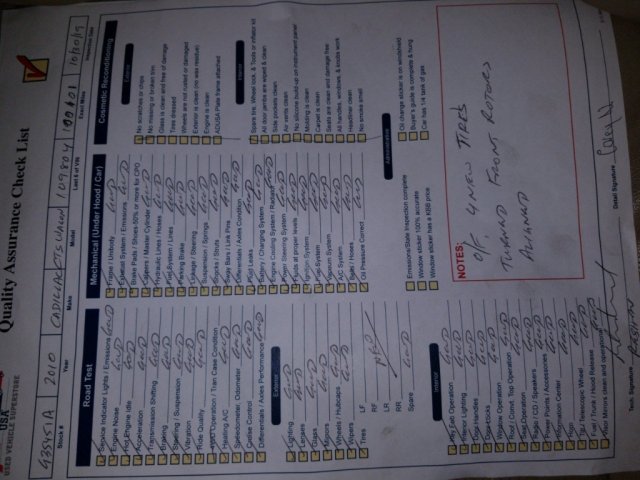 USA
USED VEHICLE SUPERSTORE
Quality Assurance Check List
43345IA 2010 CADILLAC CTS WAGON 109804 10/20/19
Stock # Year Make Model Last 6 of VIN Exact Miles Inspection Date
Road Test
Service Indicator Lights / Emissions GOOD
Engine Noise GOOD
Hot Engine Idle GOOD
Acceleration GOOD
Transmission Shifting GOOD
Braking GOOD
Steering / Suspension GOOD
Vibration GOOD
Ride Quality GOOD
Heating A/C GOOD
Speedometer, Odometer GOOD
Cruise Control GOOD
Differentials / Axles Performance GOOD
Exterior
Lighting GOOD
Lenses GOOD
Glass GOOD
Mirrors GOOD
Wheels / Hubcaps GOOD
Wipers GOOD
Tires LF
RF
LR
RR
Spare GOOD
Interior
Key Fob Operation GOOD
Interior Lighting GOOD
Door Locks GOOD
Window Operation GOOD
Roof / Conv. Top Operation GOOD
Seat Operation GOOD
Radio / CD / Speakers GOOD
Power Points / Accessories GOOD
Information Center GOOD
Horn GOOD
Tilt / Telescopic Wheel GOOD
Fuel / Trunk / Hood Release GOOD
Mechanical (Under Hood / Car)
Frame / Unibody GOOD
Exhaust System / Emissions GOOD
Brake Pads / Shoes-50% or more for CPO
Calipers / Master Cylinder GOOD
Hydraulic Lines / Hoses GOOD
Fuel System / Lines GOOD
Parking Brake GOOD
Linkage / Steering GOOD
Suspension / Springs GOOD
Shocks / Struts GOOD
Sway Bars / Link Pins GOOD
Differentials / Axles Condition GOOD
Fluid Leaks GOOD
Battery / Charging System GOOD
Engine Cooling System / Radiator GOOD
Power Steering System GOOD
Fluids at proper levels GOOD
Ignition System GOOD
Fuel System GOOD
Vacuum System GOOD
A/C System GOOD
Belts / Hoses GOOD
Oil Pressure Correct GOOD
Cosmetic Reconditioning
Exterior
No scratches or chips
No missing or broken trim
Glass is clean and free of damage
Tires dressed
Wheels are not rusted or damaged
Exterior is clean (no wax residue)
Engine is clean
ADUSA Plate frame attached
Interior
Spare tire, Wheel lock, & Tools or inflator kit
All door jambs are wiped & clean
Side pockets clean
Air vents clean
No silicone build-up on instrument panel
Molding is clean
Carpet is clean
Seats are clean and damage free
All handles, windows, & knobs work
Headliner clean
No smoke smell
Administrative
Emissions/State Inspection complete
Window sticker 100% accurate
Window sticker has a KBB price
Oil change sticker is on windshield
Buyer's guide is complete & hung
Car has 1/4 tank of gas
NOTES:
O/F 4 NEW TIRES
TURNED FRONT ROTORS
ALIGNED
Detail Signature